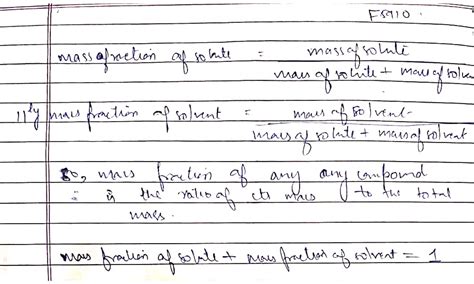 F5910.
mass fraction of solute = mass of solute
mass of solute + mass of solv
11ly mass fraction of solvent = mass of solvent
mass of solute + mass of solvent
So, mass fraction of any any compound
is the ratio of its mass to the total
mass.
mass fraction of solute + mass fraction of solvent = 1